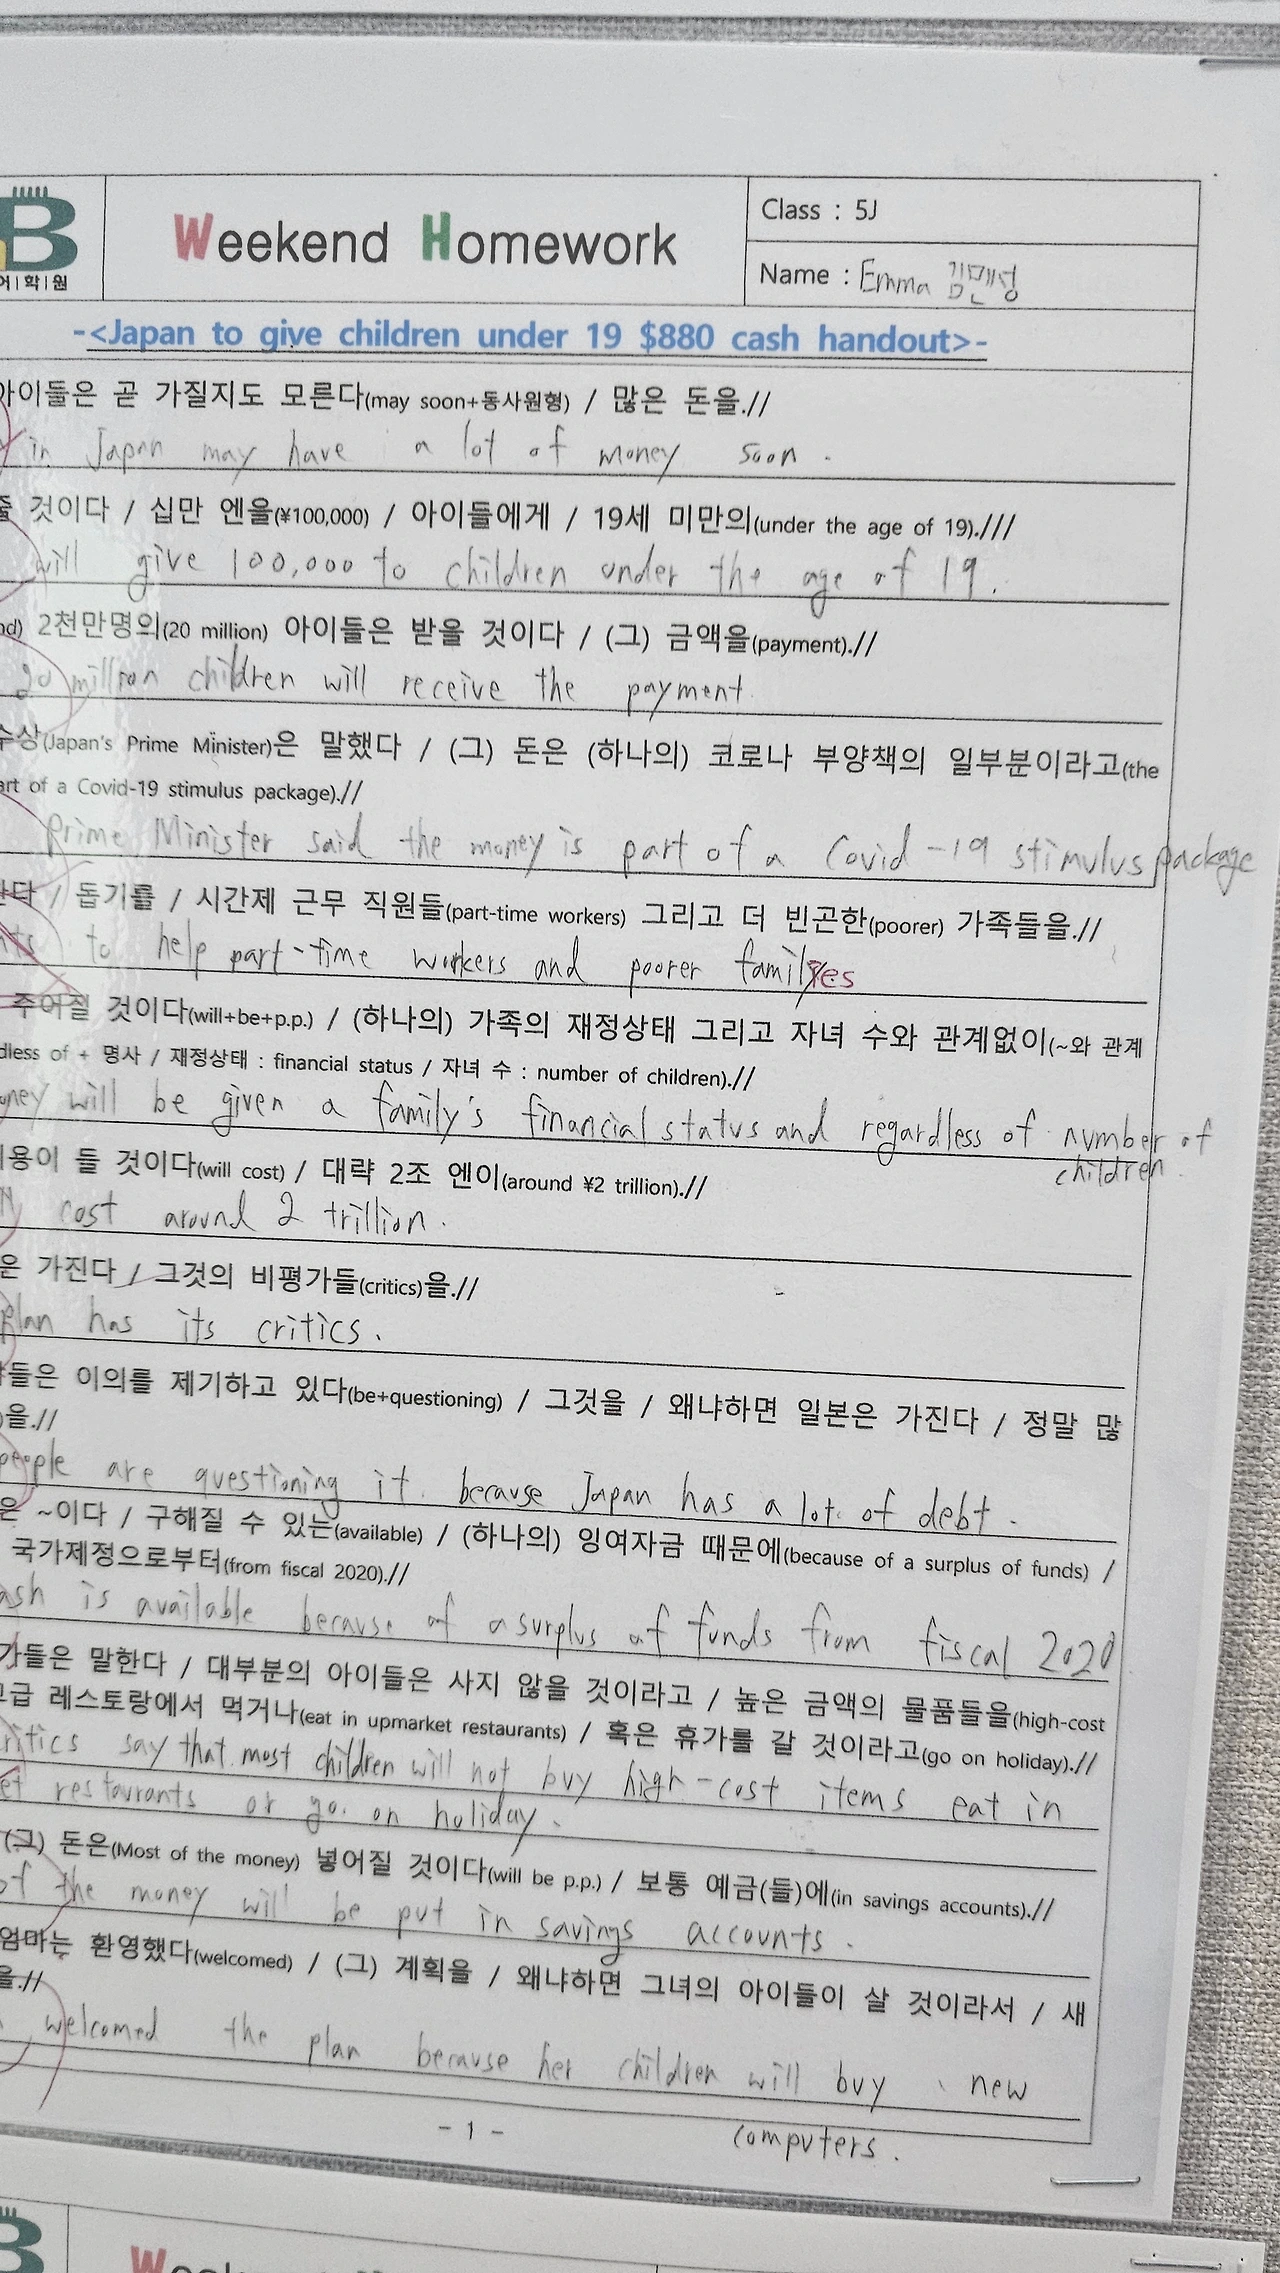 B
어|학|원
Weekend Homework
Class : 5J
Name : Emma 김민성
-<Japan to give children under 19 $880 cash handout>-
아이들은 곧 가질지도 모른다(may soon+동사원형) / 많은 돈을.//
in Japan may have a lot of money soon .
줄 것이다 / 십만 엔을(¥100,000) / 아이들에게 / 19세 미만의(under the age of 19).///
will give 100,000 to children under the age of 19.
2천만명의(20 million) 아이들은 받을 것이다 / (그) 금액을(payment).//
20 million children will receive the payment.
수상(Japan's Prime Minister)은 말했다 / (그) 돈은 (하나의) 코로나 부양책의 일부분이라고(the
art of a Covid-19 stimulus package).//
Prime Minister said the money is part of a Covid-19 stimulus package
/ 돕기를 / 시간제 근무 직원들(part-time workers) 그리고 더 빈곤한(poorer) 가족들을.//
to help part-time workers and poorer families
주어질 것이다(will+be+p.p.) / (하나의) 가족의 재정상태 그리고 자녀 수와 관계없이(~와 관계
dless of + 명사 / 재정상태 : financial status / 자녀 수 : number of children).//
oney will be given a family's financial status and regardless of number of
children.
용이 들 것이다(will cost) / 대략 2조 엔이(around ¥2 trillion).//
cost around 2 trillion.
은 가진다 / 그것의 비평가들(critics)을.//
plan has its critics.
들은 이의를 제기하고 있다(be+questioning) / 그것을 / 왜냐하면 일본은 가진다 / 정말 많
을.//
people are questioning it because Japan has a lot of debt.
은 ~이다 / 구해질 수 있는(available) / (하나의) 잉여자금 때문에(because of a surplus of funds) /
국가제정으로부터(from fiscal 2020).//
ash is available because of a surplus of funds from fiscal 2020
가들은 말한다 / 대부분의 아이들은 사지 않을 것이라고 / 높은 금액의 물품들을(high-cost
고급 레스토랑에서 먹거나(eat in upmarket restaurants) / 혹은 휴가를 갈 것이라고(go on holiday).//
ritics say that most children will not buy high-cost items eat in
et restaurants or go on holiday.
(그) 돈은(Most of the money) 넣어질 것이다(will be p.p.) / 보통 예금(들)에(in savings accounts).//
of the money will be put in savings accounts.
엄마는 환영했다(welcomed) / (그) 계획을 / 왜냐하면 그녀의 아이들이 살 것이라서 / 새
을.//
welcomed the plan because her children will buy new
computers.
- 1 -
B